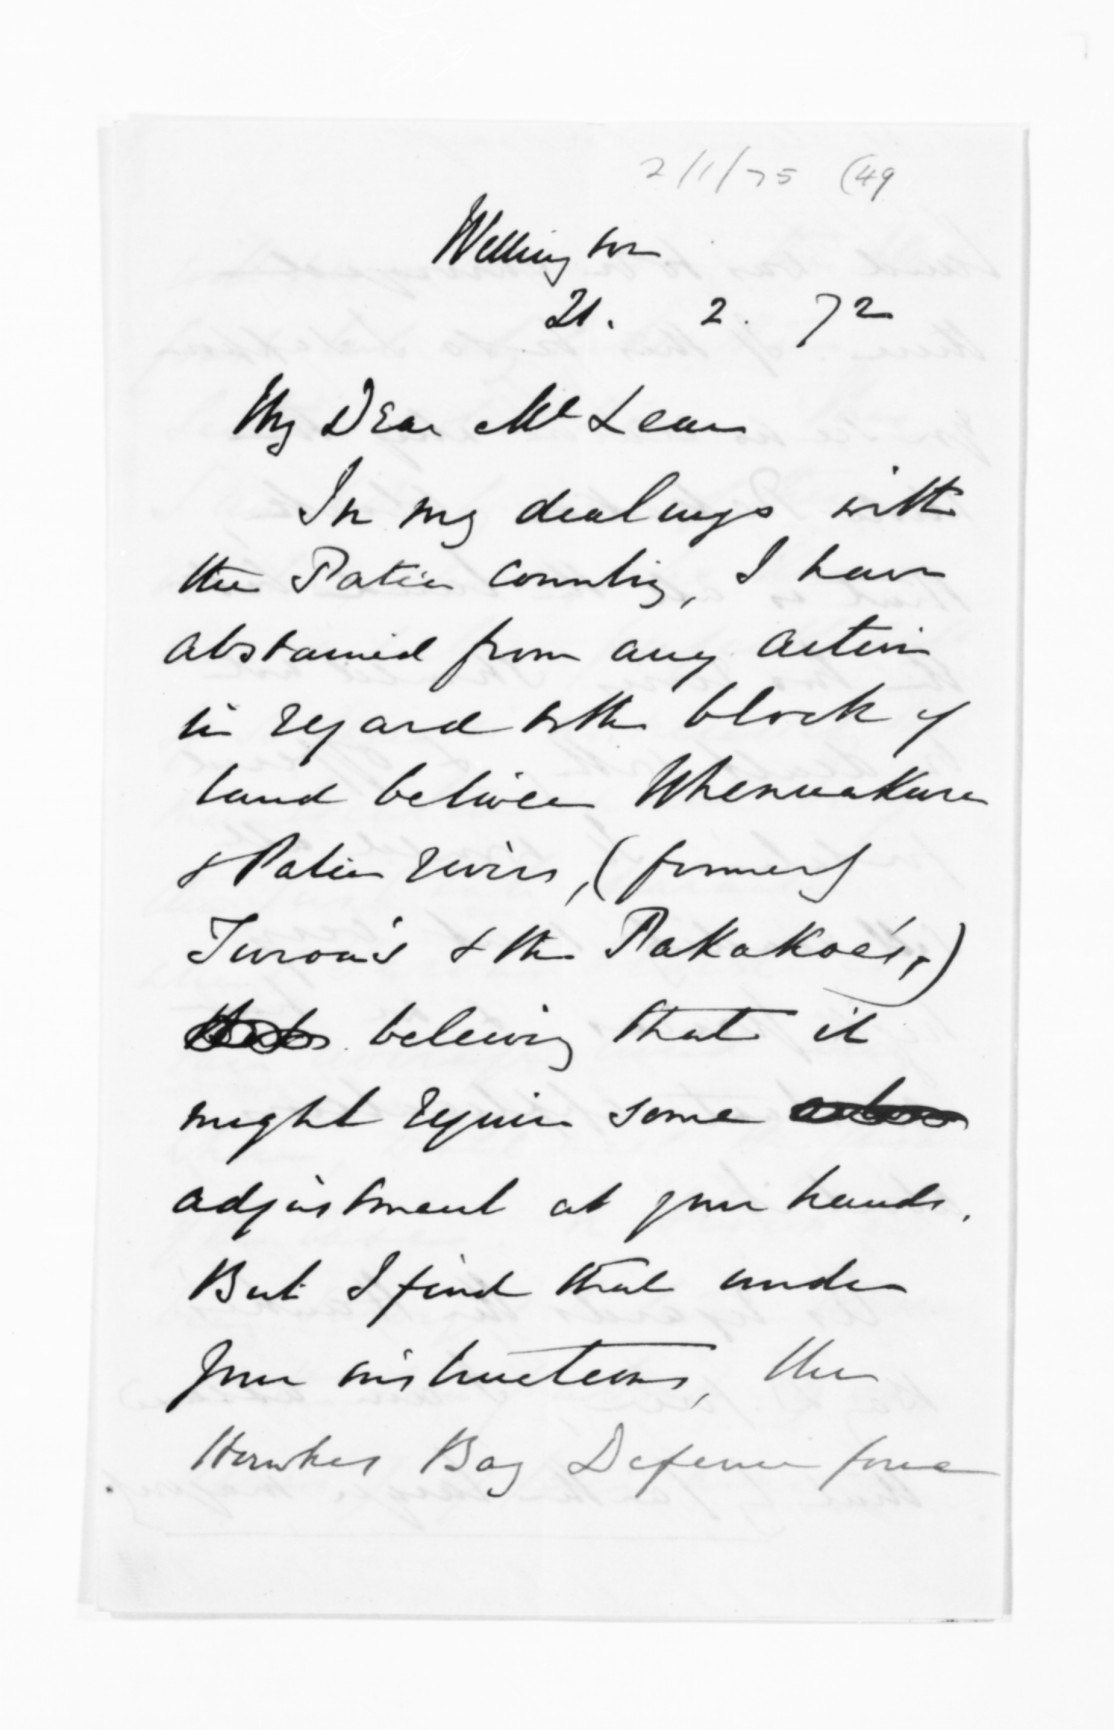 2/1/75 (49
Wellington
21. 2. 72
My Dear McLean
In my dealings with
the Patea country, I have
abstained from any action
in regard to the block of
land between Whenuakura
& Patea rivers, (formerly
Turoa's & the Pakakoe's,)
believing that it
might require some
adjustment at your hands.
But I find that under
your instructions, the
Hawkes Bay Defence force